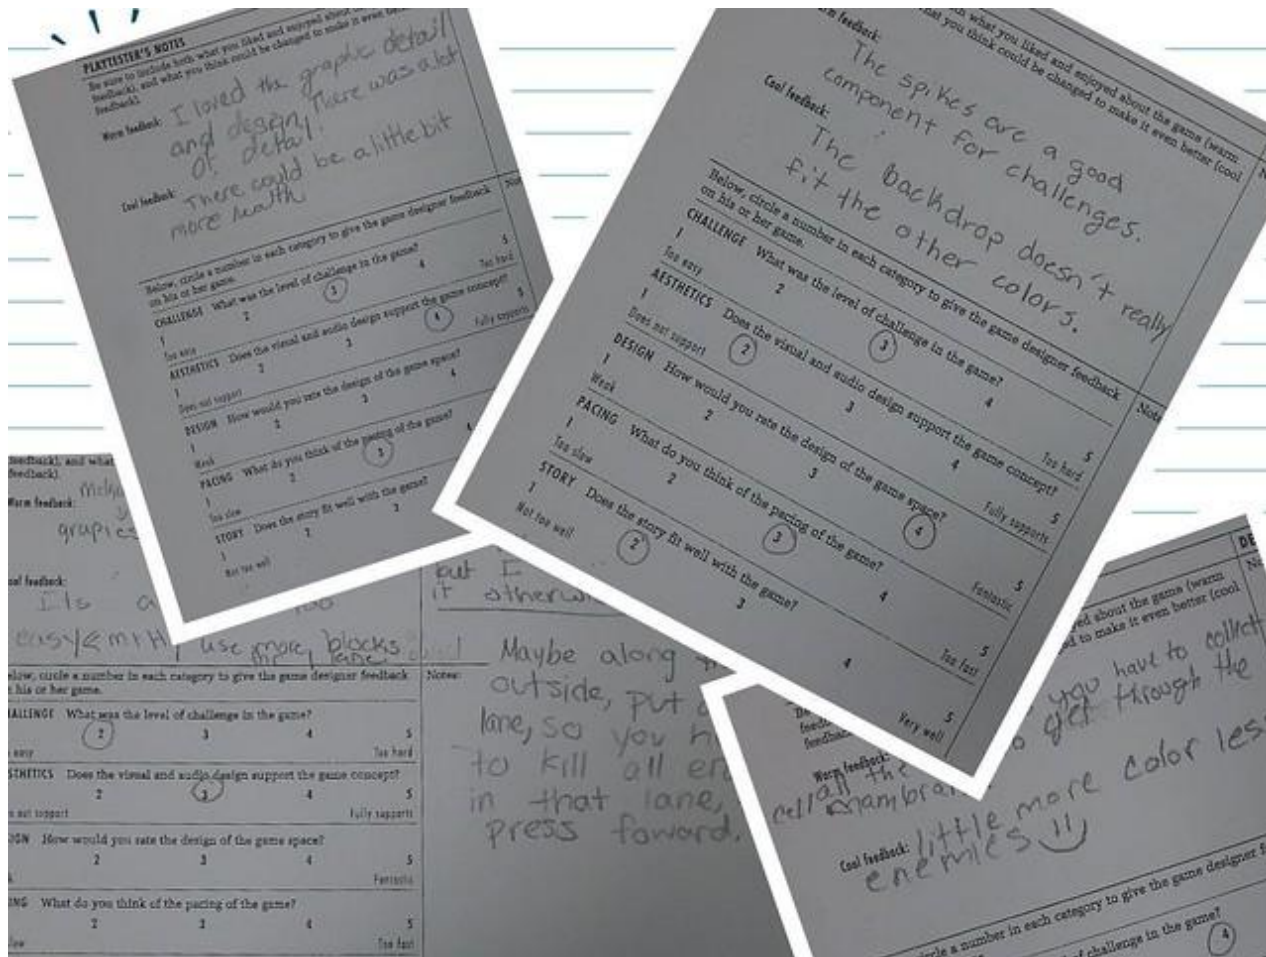 PLAYTESTER'S NOTES
Be sure to include both what you liked and enjoyed about
feedback), and what you think could be changed to make it even better
feedback).
Warm feedback: I loved the graphic detail
and design, There was a lot
of detail!
Cool feedback: There could be a little bit
more health
Below, circle a number in each category to give the game designer feedback
on his or her game.
CHALLENGE What was the level of challenge in the game?
1 2 3 4 5
Too easy Too hard
AESTHETICS Does the visual and audio design support the game concept?
1 2 3 4 5
Does not support Fully supports
DESIGN How would you rate the design of the game space?
1 2 3 4
Weak
PACING What do you think of the pacing of the game?
1 2 3 4
Too slow
STORY Does the story fit well with the game?
1 2 3
Not too well
what you liked and enjoyed about the game (warm
what you think could be changed to make it even better (cool
Warm feedback:
The spikes are a good
component for challenges.
Cool feedback:
The backdrop doesn't really
fit the other colors.
Below, circle a number in each category to give the game designer feedback
on his or her game.
Note
CHALLENGE What was the level of challenge in the game?
1 2 3 4 5
Too easy Too hard
AESTHETICS Does the visual and audio design support the game concept?
1 2 3 4 5
Does not support Fully supports
DESIGN How would you rate the design of the game space?
1 2 3 4 5
Weak Fantastic
PACING What do you think of the pacing of the game?
1 2 3 4 5
Too slow Too fast
STORY Does the story fit well with the game?
1 2 3 4 5
Not too well Very well
feedback), and what
feedback).
Warm feedback:
Cool feedback:
Its a
use more blocks
lane
below, circle a number in each category to give the game designer feedback
his or her game.
Notes:
What was the level of challenge in the game?
2 3 4 5
easy Too hard
Does the visual and audio design support the game concept?
2 3 4 5
not support Fully supports
How would you rate the design of the game space?
2 3 4 5
Fantastic
What do you think of the pacing of the game?
2 3 4 5
Too fast
but I
it
Maybe along
outside, put
lane, so you
to kill all
in that lane,
press forward.
about the game (warm
to make it even better (cool
Warm feedback:
you have to collect
all the to get through the
cell
Cool feedback: little more color less
enemies
circle a number in each category to give the game designer
of challenge in the game?
4